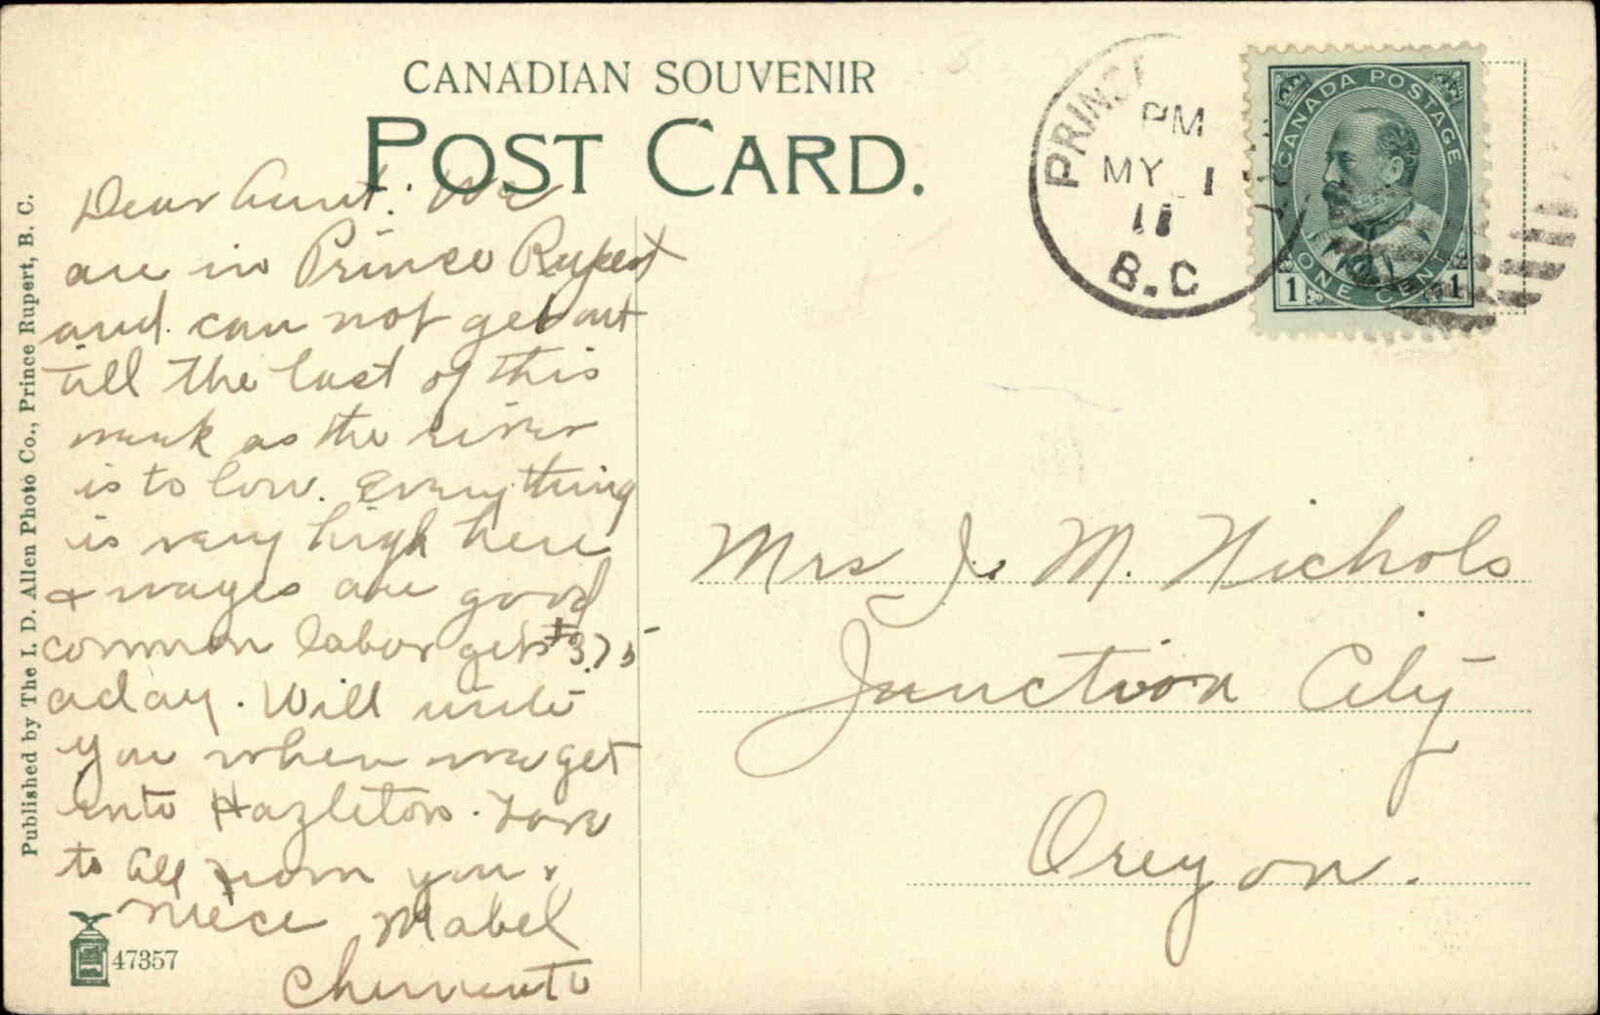 CANADIAN SOUVENIR
POST CARD.
PRINCE
PM
MY 1
11
B.C
CANADA POSTAGE
ONE CENT
1 1
Dear Aunt. We
are in Prince Rupert
and can not get out
till the last of this
week as the river
is to low. Everything
is very high here
& wages are good
common labor gets $3.75
a day. Will write
you when we get
into Hazleton. Love
to all from your
niece Mabel
Mrs J. M. Nichols
Junction City
Oregon.
Published by The I. D. Allen Photo Co., Prince Rupert, B. C.
47357